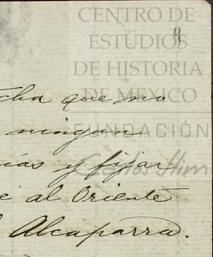 CENTRO DE
ESTUDIOS
DE HISTORIA
DE MEXICO
FUNDACIÓN
Carlos Slim
4
cha que no
ningun
ías y fijar
é al Oriente
Alcaparra.